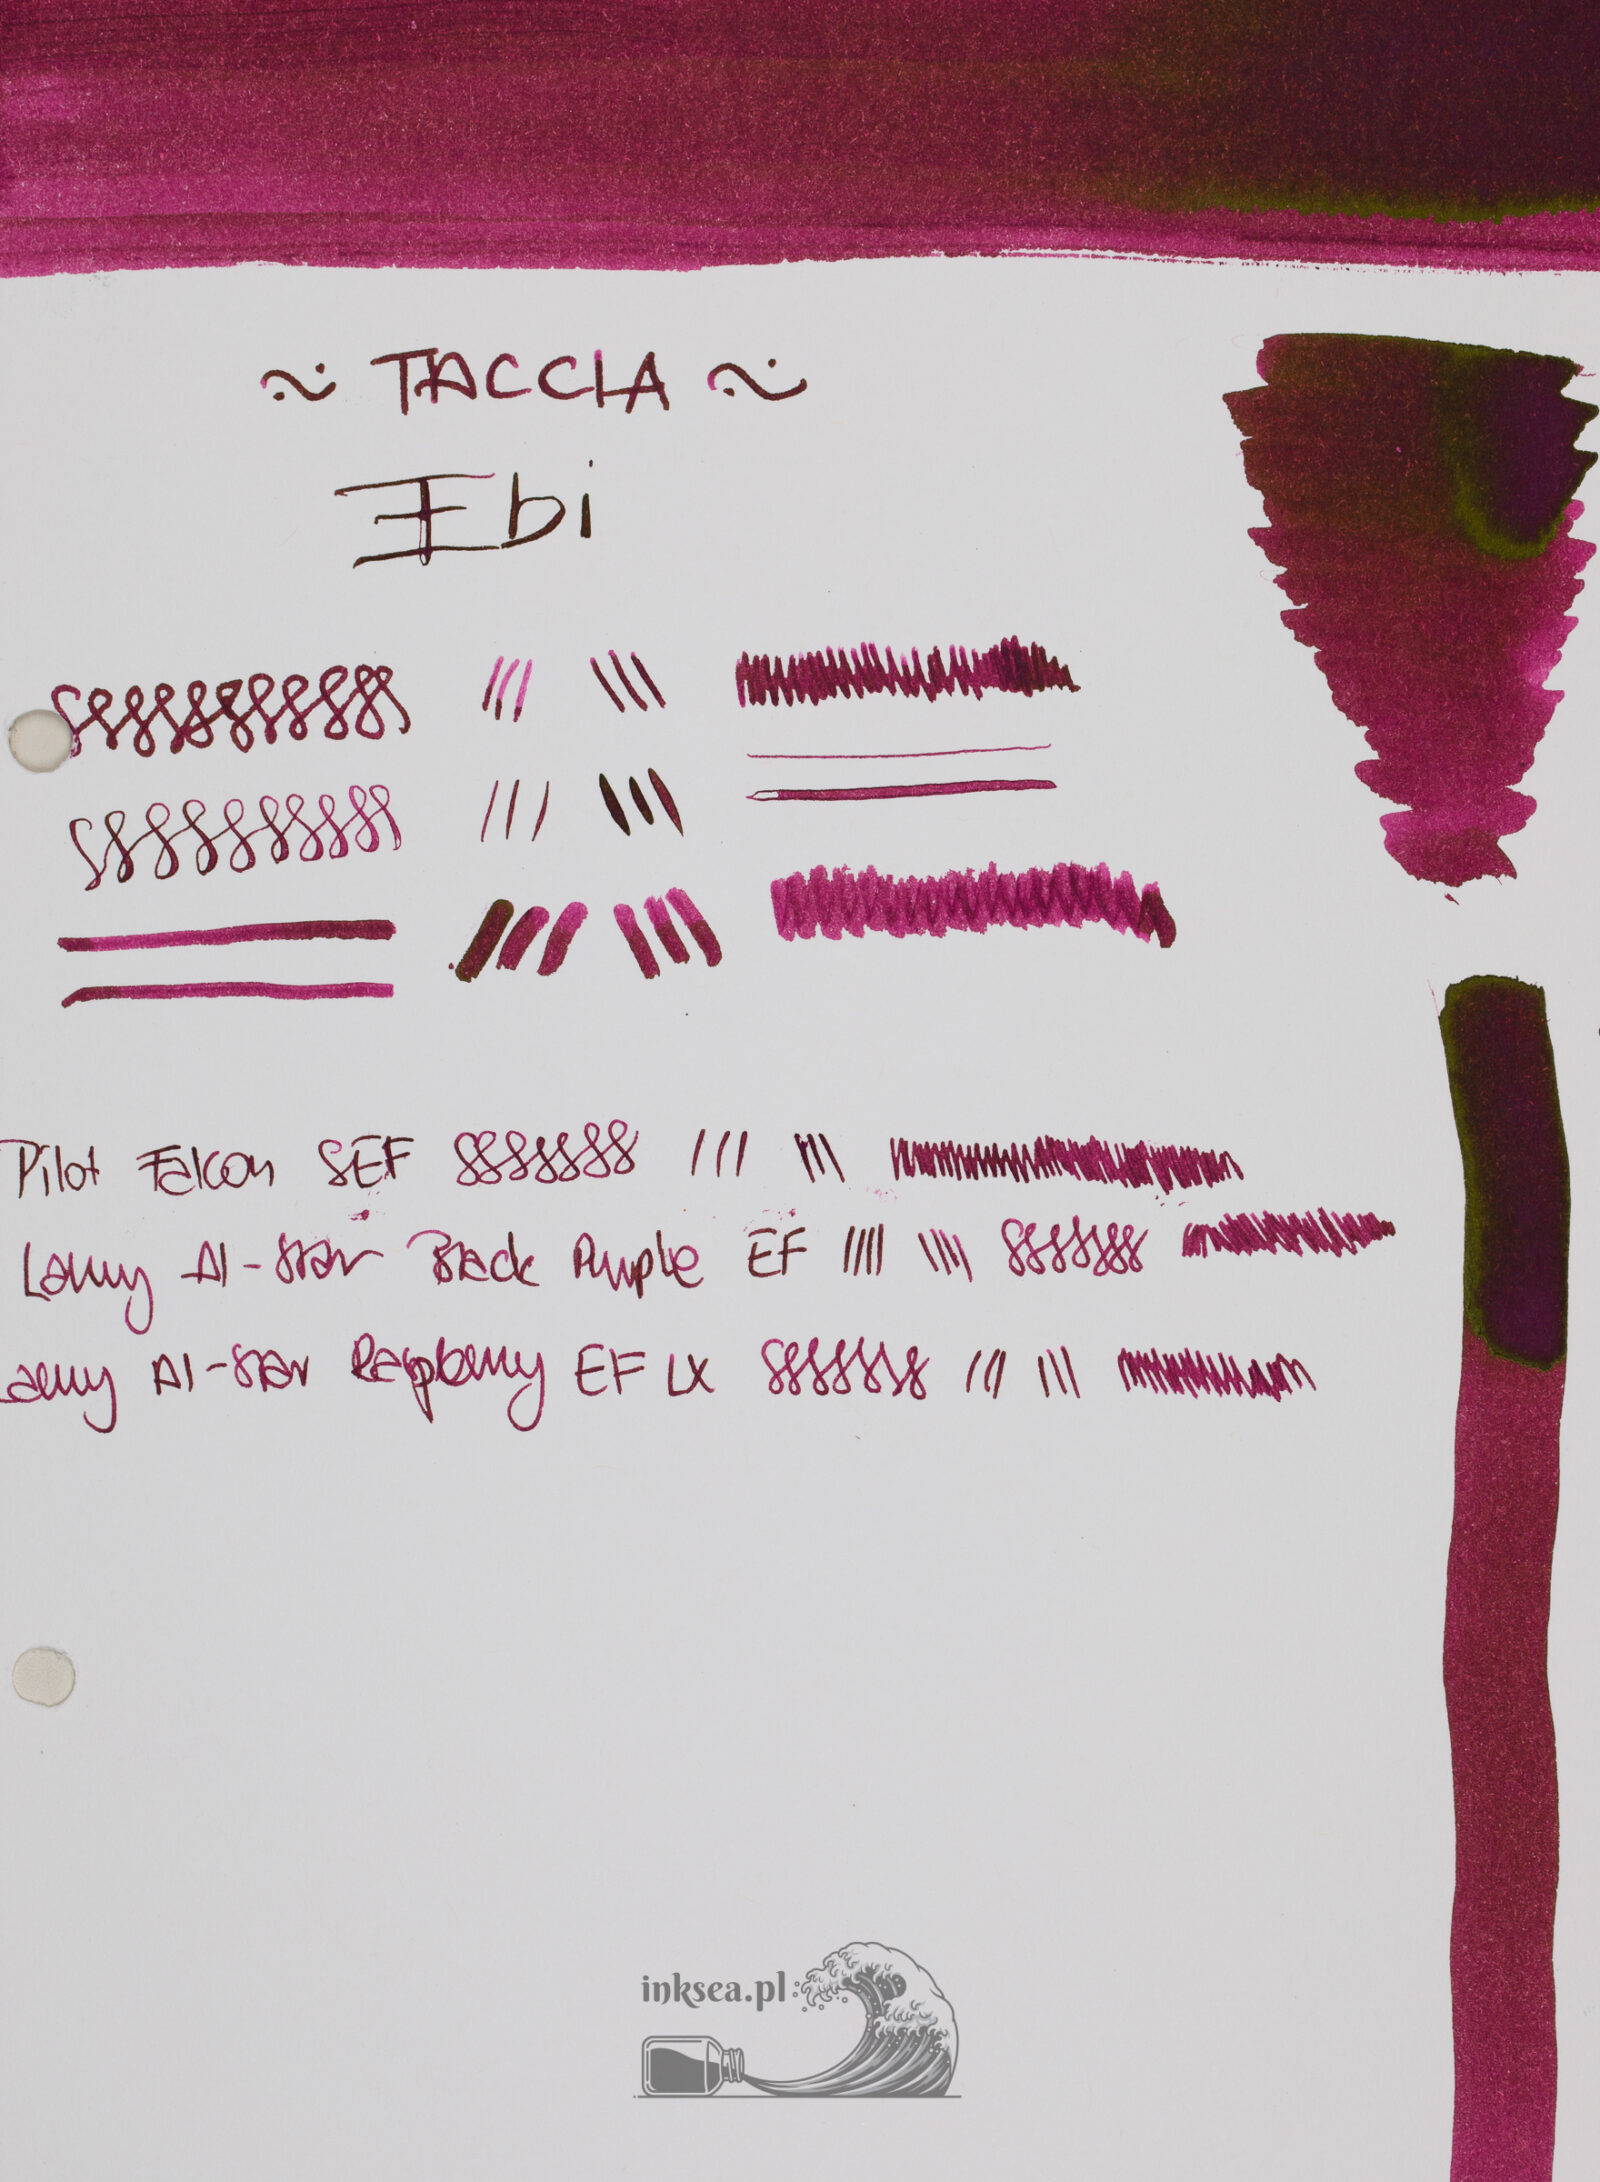 ~ TACCIA ~
Ebi
Pilot Falcon SEF
Lamy Al-Star Black Purple EF
Lamy Al-Star Raspberry EF LX
inksea.pl